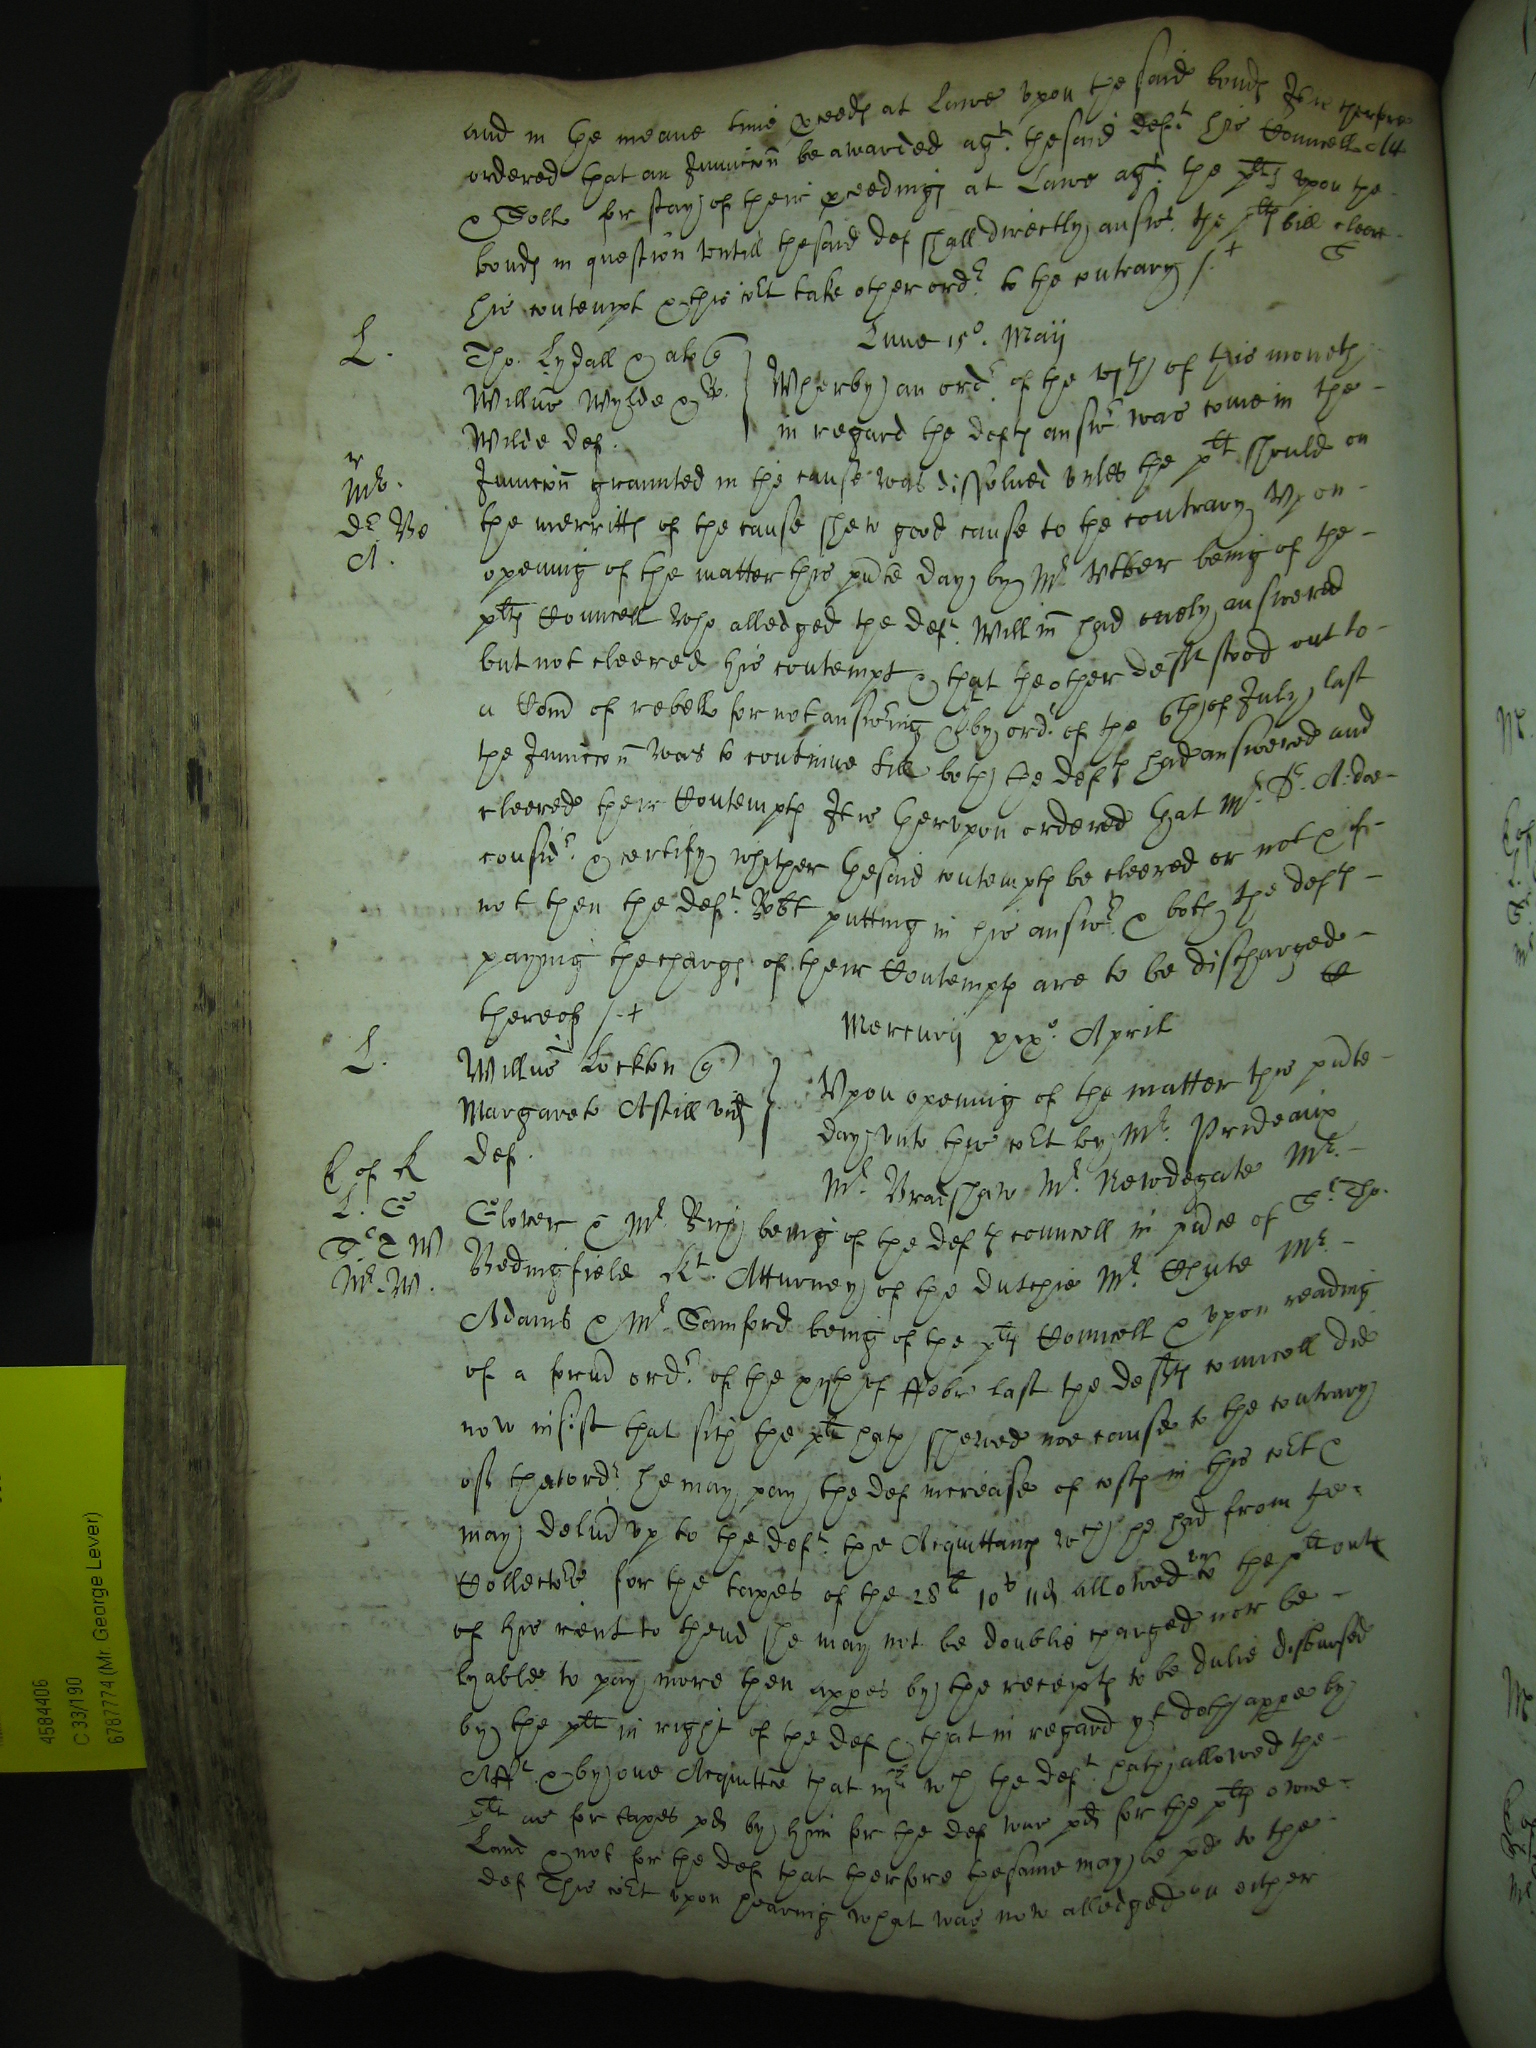 and in the meane time proceed at Lawe upon the said bonds It is therfore
ordered that an Iniuncion be awarded agt. the said deft. his Councell Att
& Sollr for stay of their proceedings at Lawe agt. the plts upon the
bonds in question untill the said def shall directly answr. the plts bill cleere
his contempt & this Cort take other ordr. to the contrary /.+
Lune 15o. Maij
L.
Tho. Lydall & als
Willus Wylde & R.
Wilde def.
Wherby an ordr. of the vjth of this moneth
in regard the defts answr was come in the
Mr.
dr Be
A.
Iniuncion graunted in the cause was dissolved unles the plt should on
the merritts of the cause shew good cause to the contrary Upon
opening of the matter this pnte day by Mr. Utber being of the
plts Councell who alledged the deft. Willm had onely answered
but not cleered his contempt & that the other deft stood out to
a Com of rebell for not answring & by ordr. of the 6th of July last
the Iniuncion was to continue till both the defts had answered and
cleered their Contempts It is herupon ordered that Mr. Dr. A: doe
considr. & certify whether the said contempts be cleered or not & if
not then the deft. Robt putting in his answr. & both the defts
paying the chargs of their Contempts are to be discharged
thereof /.+
Mercurij xixo. April
L.
Willus Lockton
Margareto Astill vid
def.
Upon opening of the matter this pnte
day unto this Cort by Mr. Prideaux
Mr. Bradshaw Mr. Newdegate Mr.
E of K
L. G
Sr T W
Mr. W.
Glover & Mr. Rich being of the defts councell in pnce of Sr. Tho.
Bedingfield Kt. Atturney of the dutchie Mr. Chute Mr.
Adams & Mr. Samford being of the plts Councell & upon reading
of a former ordr. of the xjth of ffebr last the defts councell did
now insist that sith the plt hath shewed noe cause to the contrary
of that ordr. he may pay the def increase of costs in this Cort &
may deliver up to the deft. the Acquittancs wch he had from the
Collectors for the taxes of the 28l 10s 11d allowed to the plt out
of his rent to thend she may not be double charged nor be
lyable to pay more then appes by the receipts to be dulie disbursed
by the plt in right of the def & that in regard yt doth appe by
Afft. & by one Acquittce that wch the deft. hath allowed the
plt as for taxes pd by him for the def was pd for the plts owne
Land & not for the def that therfore the same may be pd to the
def This Cort upon hearing what was now alledged on either
4584406
C 33/190
6787774 (Mr George Lever)